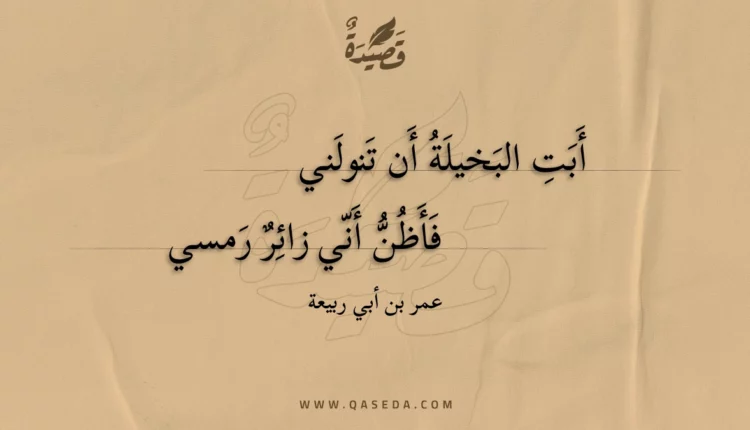 قَصِيْدَةٌ
أَبَتِ البَخيلَةُ أَن تَنولَني
فَأَظُنُّ أَنّي زائِرٌ رَمسي
عمر بن أبي ربيعة
WWW.QASEDA.COM